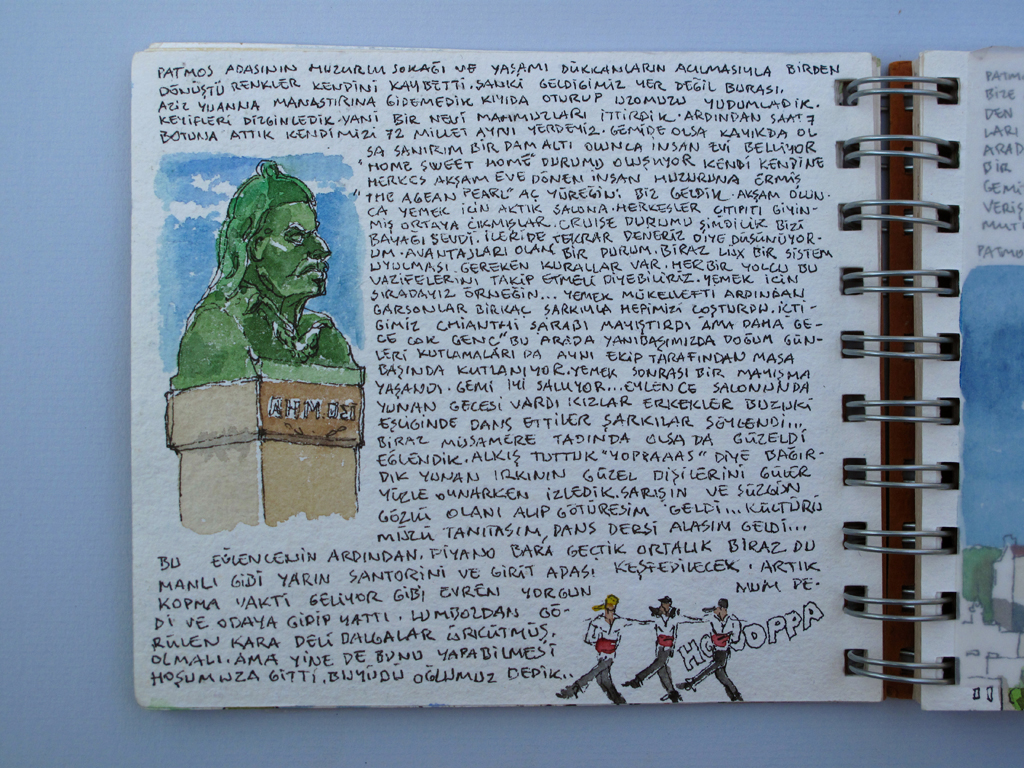 PATMOS ADASININ HUZURLU SOKAĞI VE YAŞAMI DÜKKANLARIN AÇILMASIYLA BİRDEN
DÖNÜŞTÜ RENKLER KENDİNİ KAYBETTİ. SANKİ GELDİGİMİZ YER DEĞİL BURASI.
AZİZ YUANNA MANASTIRINA GİDEMEDİK KIYIDA OTURUP UZOMUZU YUDUMLADIK.
KEYİFLERİ DİZGİNLEDİK. YANİ BİR NEVİ MAHMUZLARI İTTİRDİK. ARDINDAN SAAT 7
BOTUNA ATTIK KENDİMİZİ 72 MİLLET AYNI YERDEYİZ. GEMİDE OLSA KAYIKDA OL
SA SANIRIM BİR DAM ALTI OLUNCA İNSAN EVİ BELLİYOR
"HOME SWEET HOME" DURUMU OLUŞUYOR KENDİ KENDİNE
HERKES AKŞAM EVE DÖNEN İNSAN HUZURUNA ERMİŞ
"THE AGEAN PEARL" AÇ YÜREĞİNİ BİZ GELDİK. AKŞAM OLUN-
CA YEMEK İÇİN AKTIK SALONA. HERKESLER ÇITIPITI GİYİN-
MİŞ ORTAYA ÇIKMIŞLAR. CRUISE DURUMU ŞİMDİLİK BİZİ
BAYAĞI SEVDİ. İLERİDE TEKRAR DENERİZ DİYE DÜŞÜNÜYOR-
UM. AVANTAJLARI OLAN BİR DURUM. BİRAZ LUX BİR SİSTEM
UYULMASI GEREKEN KURALLAR VAR. HER BİR YOLCU BU
VAZİFELERİNİ TAKİP ETMELİ DİYEBİLİRİZ. YEMEK İÇİN
SIRADAYIZ ÖRNEĞİN... YEMEK MÜKELLEFTİ ARDINDAN
GARSONLAR BİRKAÇ ŞARKIYLA HEPİMİZİ COŞTURDU. İÇTİ-
GİMİZ CHIANTHI ŞARABI MAYIŞTIRDI AMA DAHA GE-
CE ÇOK GENÇ" BU ARADA YANIBAŞIMIZDA DOĞUM GÜN-
LERİ KUTLAMALARI DA AYNI EKİP TARAFINDAN MASA
BAŞINDA KUTLANIYOR. YEMEK SONRASI BİR MAYIŞMA
YAŞANDI. GEMİ İYİ SALLIYOR... EYLENCE SALONUNDA
YUNAN GECESİ VARDI KIZLAR ERKEKLER BUZUKİ
EŞLİĞİNDE DANS ETTİLER ŞARKILAR SÖYLENDİ...
BİRAZ MÜSAMERE TADINDA OLSA DA GÜZELDİ
EĞLENDİK. ALKIŞ TUTTUK "YOPRAAAS" DİYE BAĞIR-
DIK YUNAN IRKININ GÜZEL DİŞİLERİNİ GÜLER
YÜZLE OYNARKEN İZLEDİK. SARIŞIN VE SÜZGÜN
GÖZLÜ OLANI ALIP GÖTÜRESİM GELDİ... KÜLTÜRÜ
MÜZÜ TANITASIM, DANS DERSİ ALASIM GELDİ...
BU EĞLENCENİN ARDINDAN, PİYANO BARA GEÇTİK ORTALIK BİRAZ DU
MANLI GİBİ YARIN SANTORİNİ VE GİRİT ADASI KEŞFEDİLECEK. ARTIK
KOPMA VAKTİ GELİYOR GİBİ EVREN YORGUN MUM DE-
Dİ VE ODAYA GİDİP YATTI. LUMBOZDAN GÖ-
RÜLEN KARA DELİ DALGALAR ÜRKÜTMÜŞ
OLMALI. AMA YİNE DE BUNU YAPABİLMESİ
HOŞUMUZA GİTTİ. BÜYÜDÜ OĞLUMUZ DEDİK..
HOOOPPA
PATMO
BİZE
DEN
LARI
ARAD
BİR
GEMİ
VERİŞ
PATMO